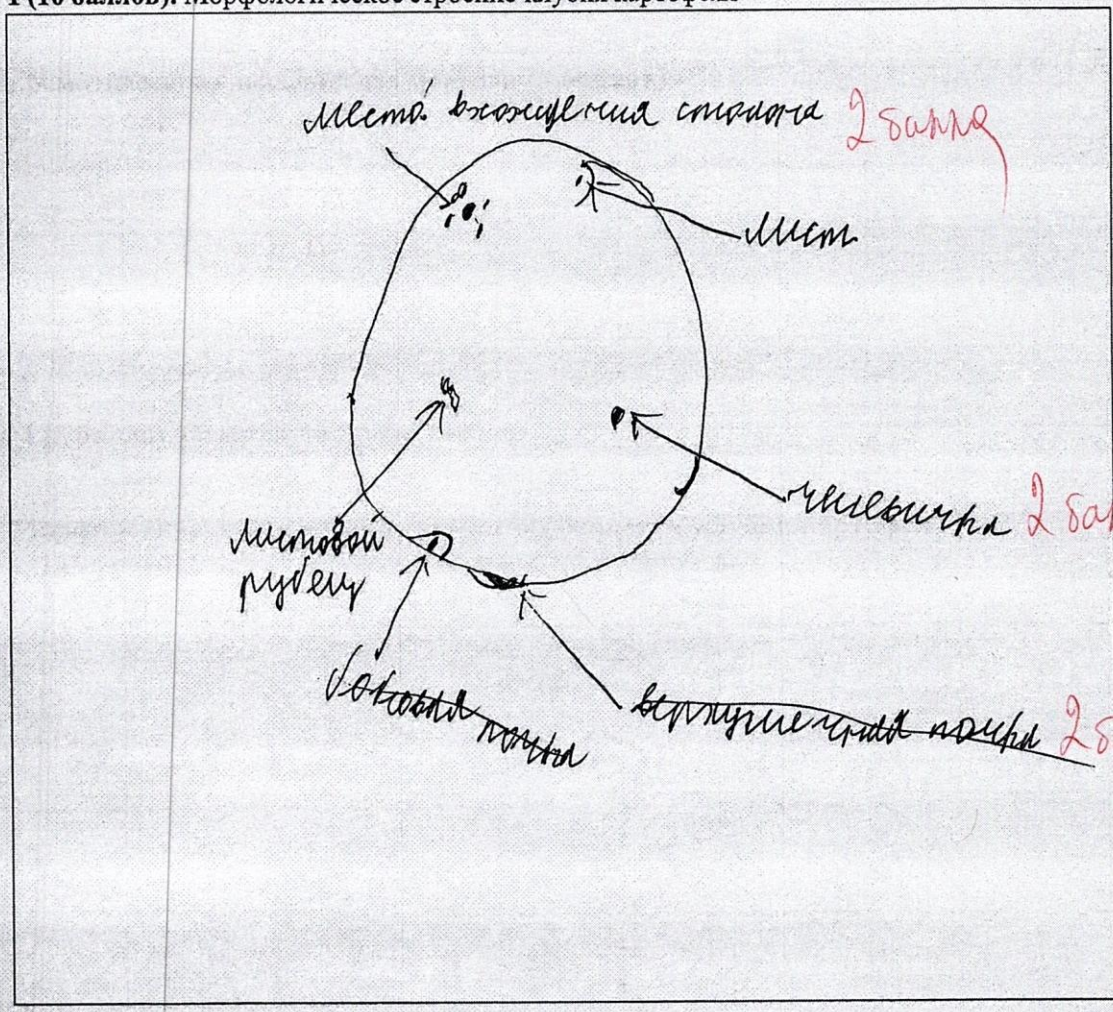 1 (10 баллов). Морфологическое строение клубня картофеля
место вхождения столона 2 балла
лист
чечевичка 2 бал
листовой
рубец
боковая почка
верхушечная почка 2б